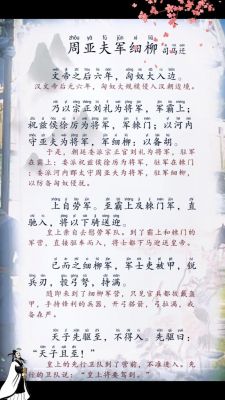 周亚夫军细柳 司马迁
文帝之后六年，匈奴大入边。
汉文帝后元六年，匈奴大规模侵入汉朝边境。
乃以宗正刘礼为将军，军霸上；
祝兹侯徐厉为将军，军棘门；以河内
守亚夫为将军，军细柳：以备胡。
于是，朝廷委派宗正官刘礼为将军，驻军
在霸上；委派祝兹侯徐厉为将军，驻军在棘门；
委派河内郡太守周亚夫为将军，驻军细柳，
以防备匈奴侵扰。
上自劳军。至霸上及棘门军，直
驰入，将以下骑送迎。
皇上亲自去慰劳军队。到了霸上和棘门的
军营，直接驱车而入，将士都下马迎送皇帝。
已而之细柳军，军士吏被甲，锐
兵刃，彀弓弩，持满。
随即来到了细柳军营，只见官兵都披戴盔
甲，手持锋利的兵器，开弓搭箭，弓拉满，戒
备森严。
天子先驱至，不得入。先驱曰：
“天子且至！”
皇上的先行卫队到了营前，不准进入。先
行的卫队说：“皇上将要驾到。”